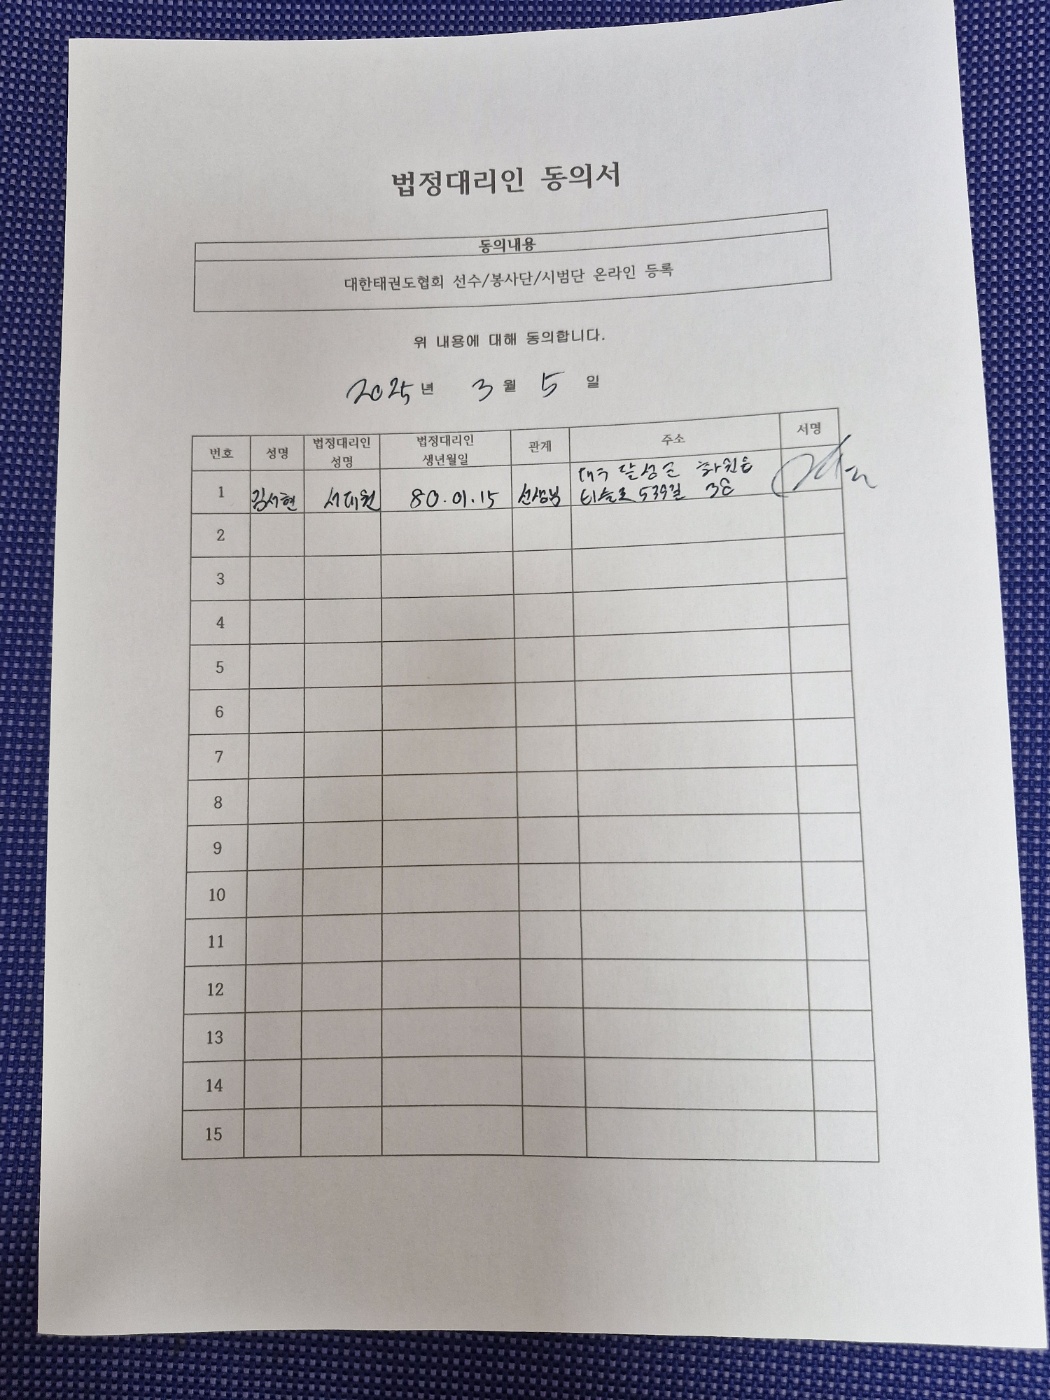 법정대리인 동의서
동의내용
대한태권도협회 선수/봉사단/시범단 온라인 등록
위 내용에 대해 동의합니다.
2025년 3월 5일
번호 성명 법정대리인 성명 법정대리인 생년월일 관계 주소 서명
대구 달성군 하빈면
1 김서현 서대원 80.01.15 선생님 539길 38
2
3
4
5
6
7
8
9
10
11
12
13
14
15